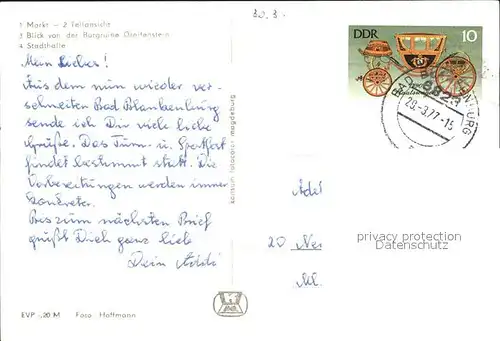 1 Markt — 2 Teilansicht
3 Blick von der Burgruine Greifenstein
4 Stadthalle
30.3.
DDR 10
28-3.77-15
Mein Liebes!
Aus dem nun wieder ver-
schneiten Bad Blankenburg
sende ich Dir viele liebe
Grüße. Das Turn- u. Sportfest
findet bestimmt statt. Die
Vorbereitungen werden immer
konkreter.
Bis zum nächsten Brief
grüßt Dich ganz lieb
Dein Addi
konsum fotocolor magdeburg
Add
20 Neu
privacy protection
Datenschutz
EVP -,20 M Foto Hoffmann